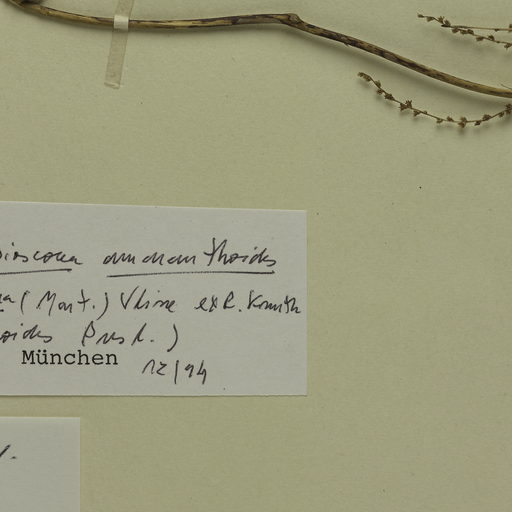 Dioscorea amaranthoides
(Mart.) Uline ex R. Knuth
oides Presl.)
München 12/94